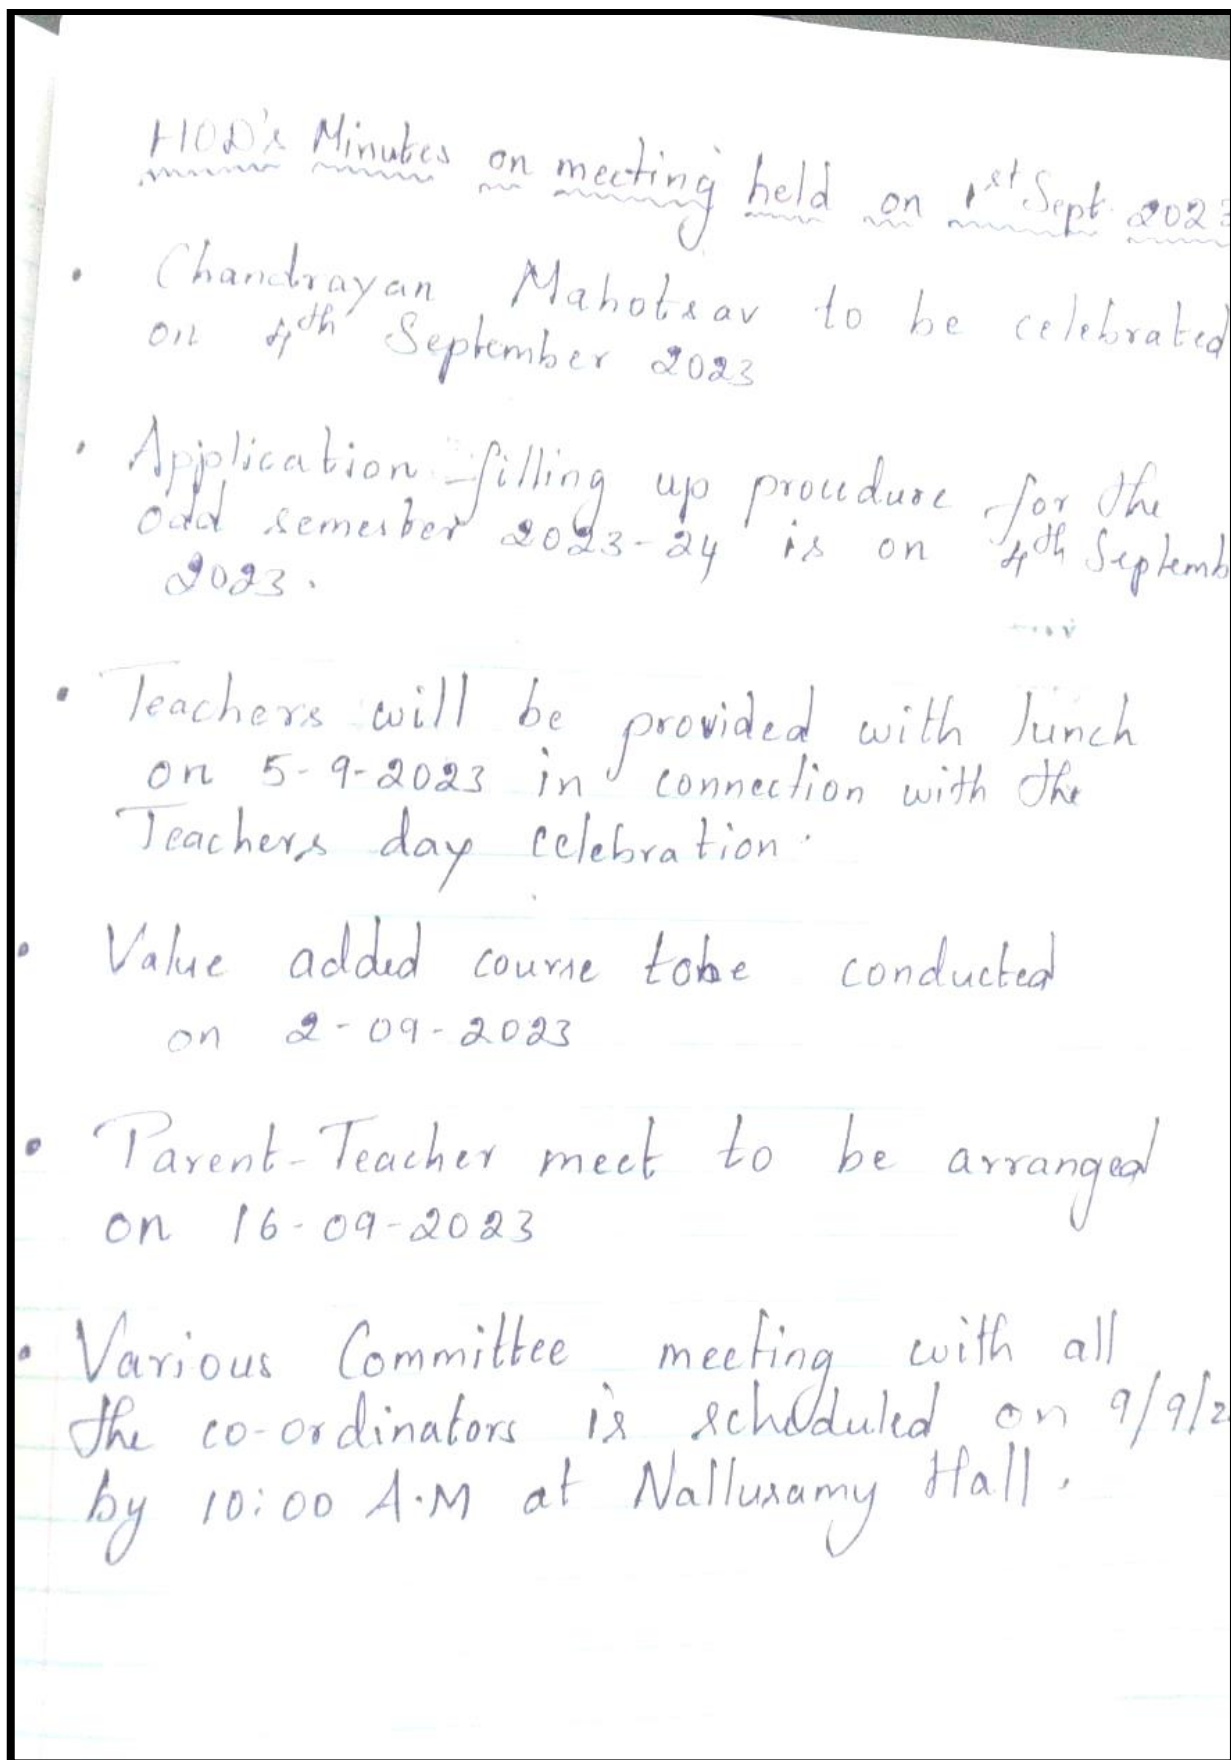 HOD's Minutes on meeting held on 1st Sept. 2023
• Chandrayan Mahotsav to be celebrated
on 4th September 2023
• Application filling up procedure for the
odd semester 2023-24 is on 4th Septemb
2023.
• Teachers will be provided with lunch
on 5-9-2023 in connection with the
Teachers day celebration.
• Value added course tobe conducted
on 2-09-2023
• Parent-Teacher meet to be arranged
on 16-09-2023
• Various Committee meeting with all
the co-ordinators is scheduled on 9/9/2
by 10:00 A.M at Nallusamy Hall.